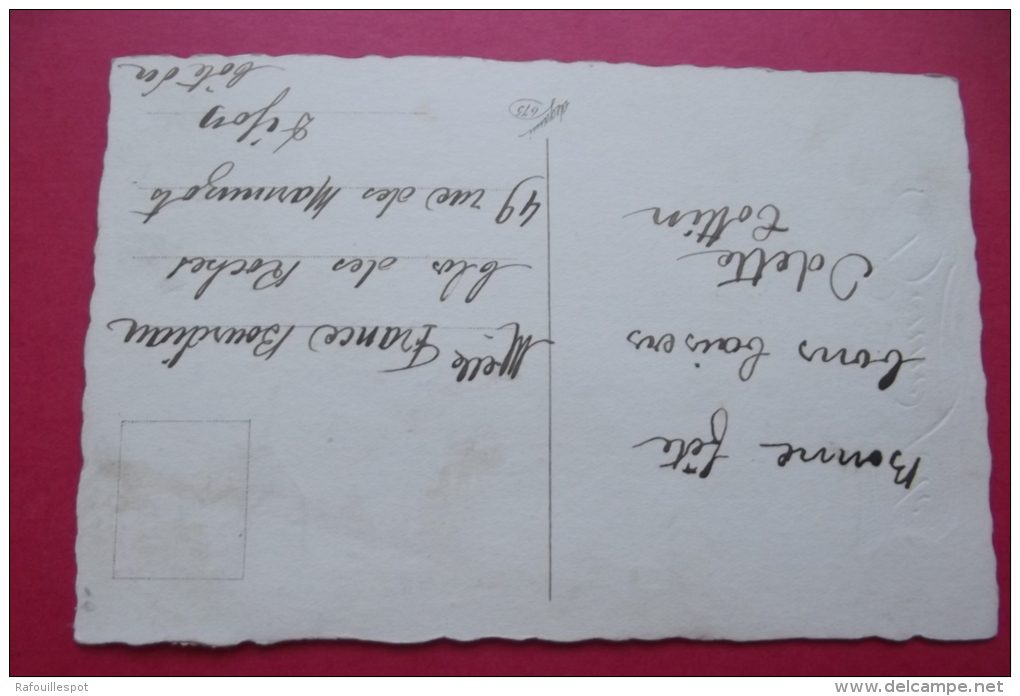 Bonne fête
bons baisers
Odette
Cottin
Melle France Bourdiau
Clos des Roches
49 rue des Marmuzots
Dijon
Côte d'or
675
Rafouillespot
www.delcampe.net